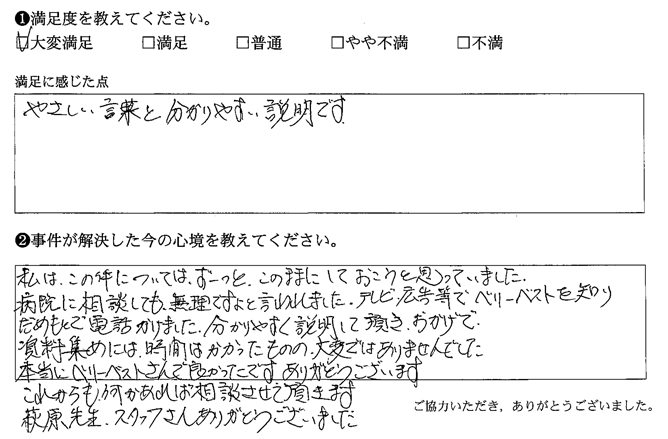 ❶満足度を教えてください。
☑大変満足 □満足 □普通 □やや不満 □不満
満足に感じた点
やさしい言葉と分かりやすい説明です
❷事件が解決した今の心境を教えてください。
私は、この件については、ずーっと、このままにしておこうと思っていました。
病院に相談しても、無理ですよと言われました。テレビ広告等でベリーベストを知り
だめもとで電話かけました。分かりやすく説明して頂き、おかげで
資料集めには、時間はかかったものの、大変ではありませんでした
本当にベリーベストさんで良かったです ありがとうございます
これからも何かあれば相談させて頂きます
萩原先生、スタッフさんありがとうございました
ご協力いただき、ありがとうございました。